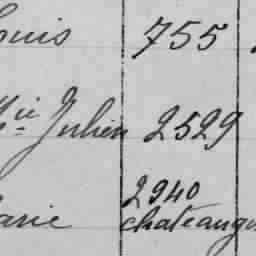 ouis 755
Julien 2529
arie 2940
chateaugu